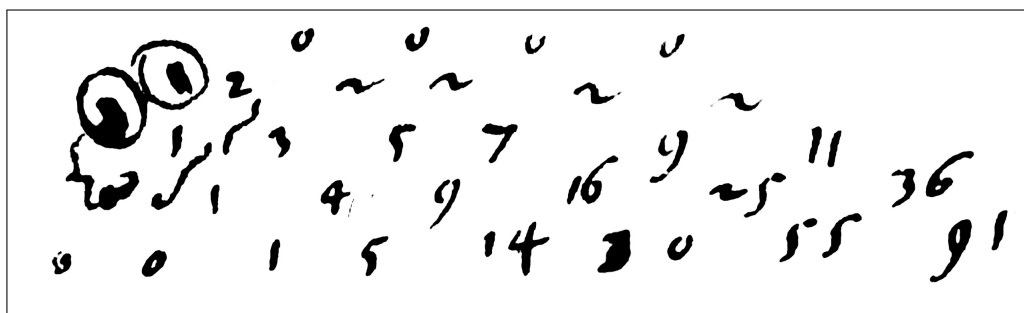 0 0 0 0
2 2 2 2 2
1 3 5 7 9 11
1 4 9 16 25 36
0 0 1 5 14 30 55 91